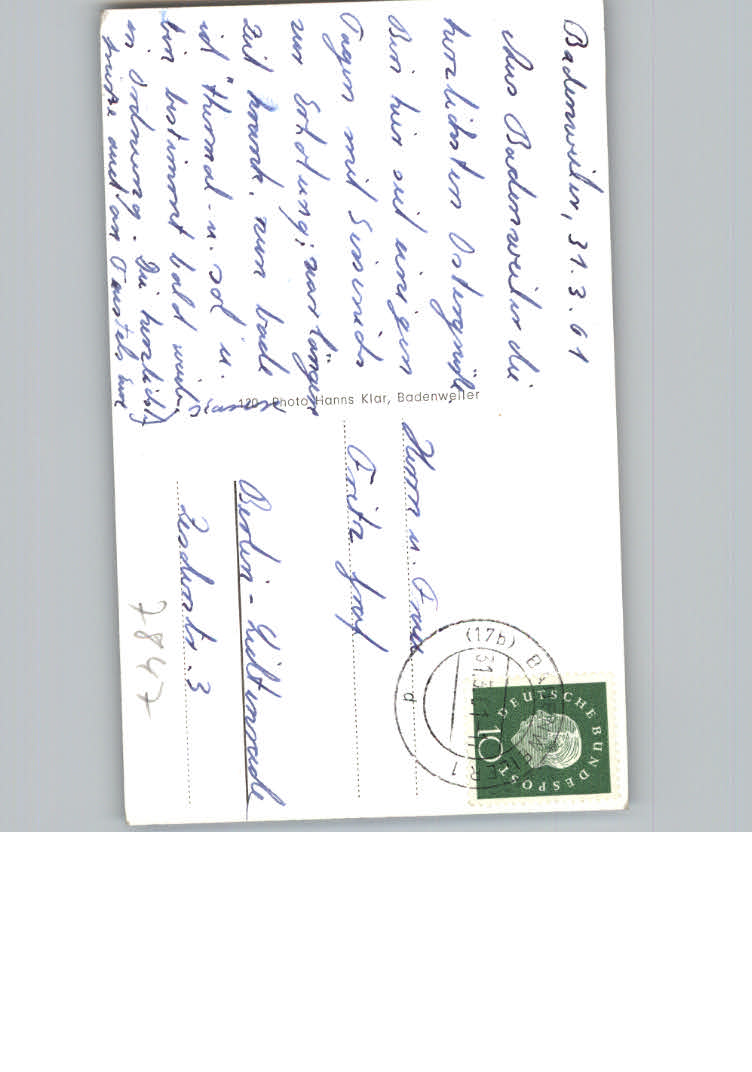 Badenweiler, 31.3.61
Aus Badenweiler die
herzlichsten Ostergrüße.
Bin hier seit einigen
Tagen mit
zur Erholung; war längere
Zeit krank, nun bade
ich "Thermal- u. sol u.
bin bestimmt bald wieder
in Ordnung. Die herzlichst
Grüße auch an
120 Photo Hanns Klar, Badenweiler
Herrn u. Frau
Fritz Graf
Berlin-Lichtenrade
3
7847
(17b) BADENWEILER 1
31.3.61
d
DEUTSCHE BUNDESPOST
10